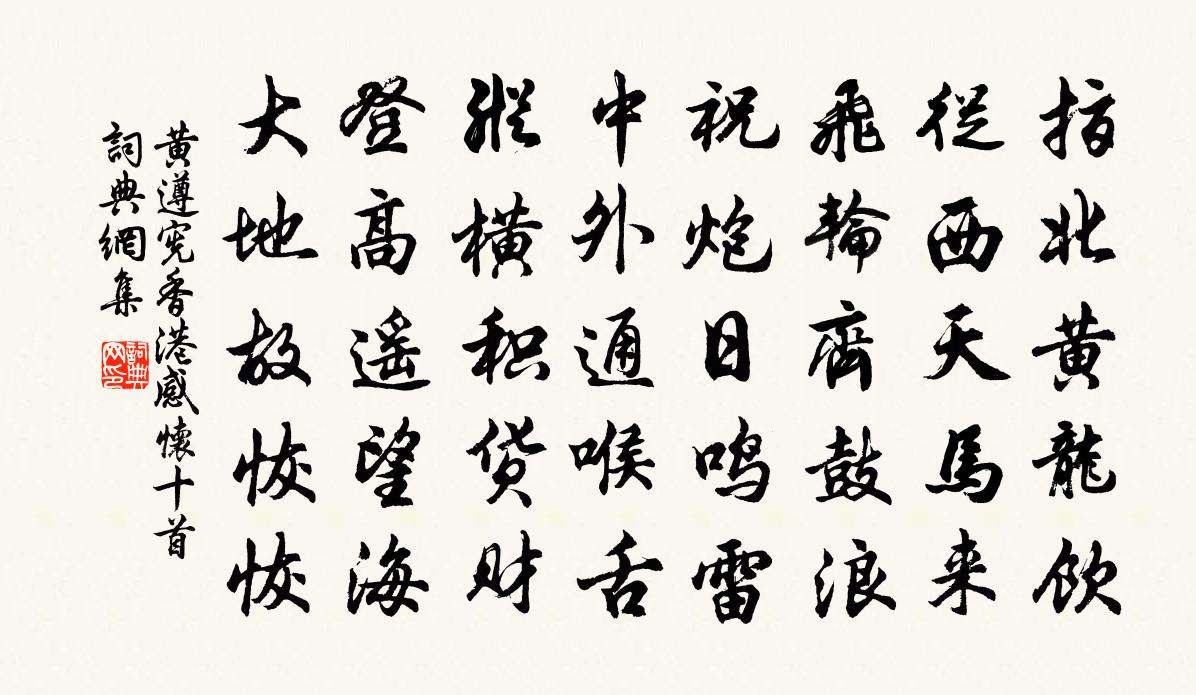 指北黄龍飲
従西天馬来
飛輪齊鼓浪
祝炮日鸣雷
中外通喉舌
縱横积货财
登髙遥望海
大地故恢恢
黄遵宪香港感懷十首
詞典網集
詞典网印